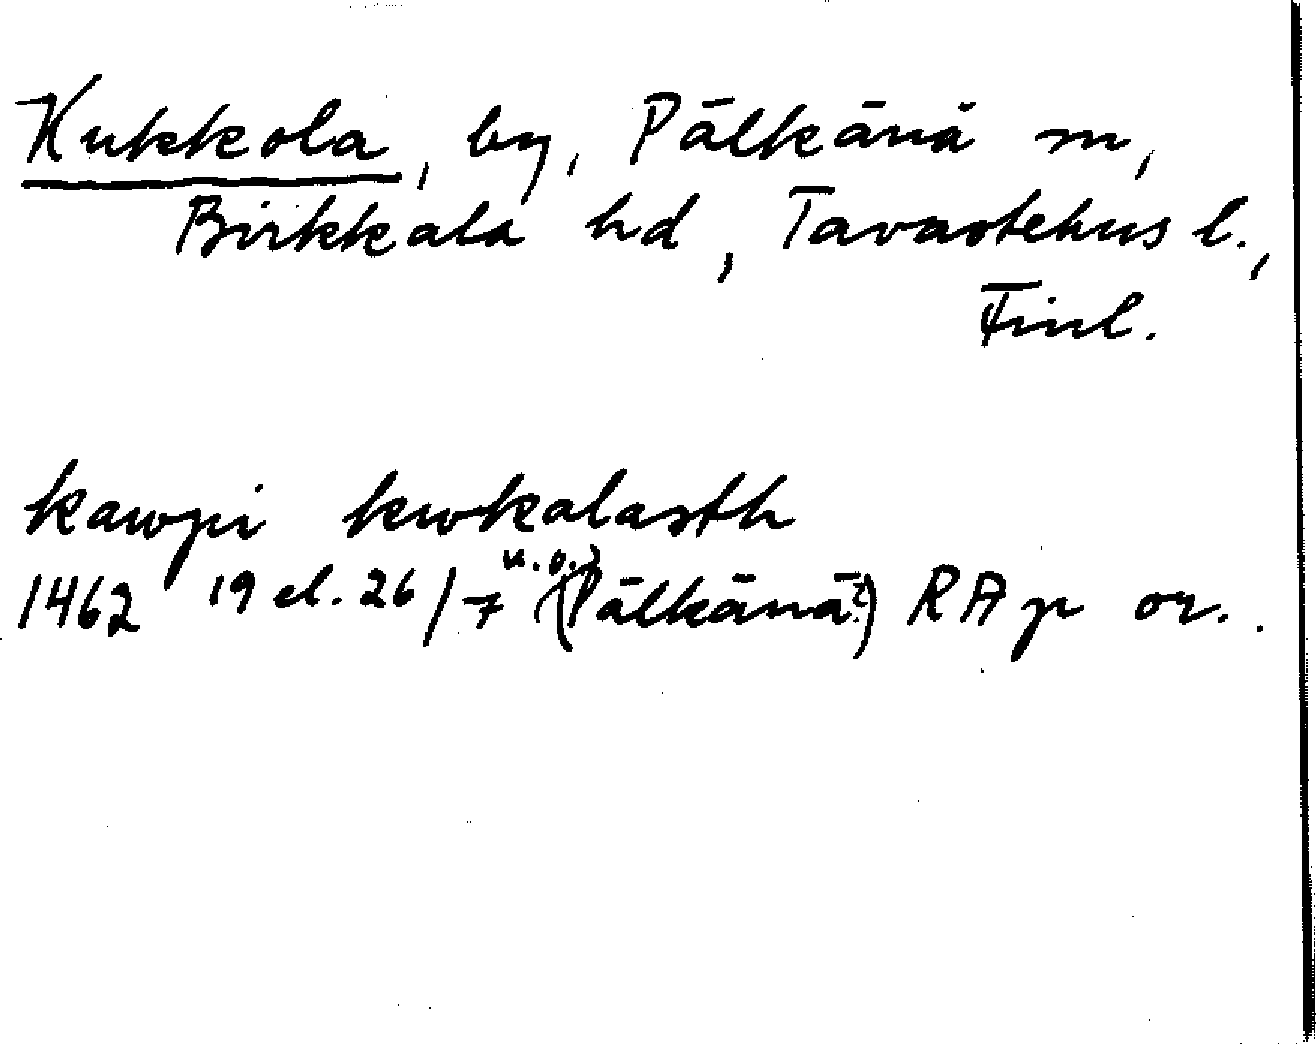 Kukkola, by, Pälkänä sn,
Birkkala hd, Tavastehus l.,
Finl.
kawpi kwkalasth
1462 19 el. 26/7 u.o. (Pälkänä?) RAp or.